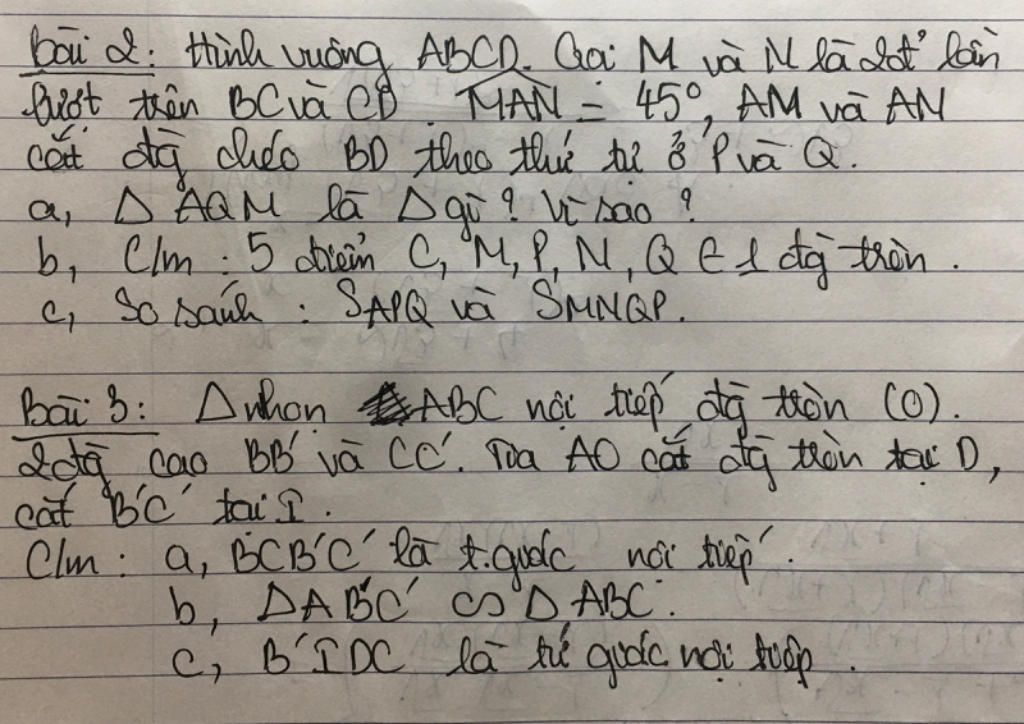 Bài 2: Hình vuông ABCD. Gọi M và N là 2đ' lần
lượt trên BC và CD. MAN = 45°, AM và AN
cắt đg chéo BD theo thứ tự ở P và Q.
a, Δ AQM là Δ gì? Vì sao?
b, C/m: 5 điểm C, M, P, N, Q ∈ 1 đg tròn.
c, So sánh: SAPQ và SMNQP.
Bài 3: Δ nhọn ABC nội tiếp đg tròn (O).
2 đg cao BB' và CC'. Tia AO cắt đg tròn tại D,
cắt B'C' tại I.
C/m: a, BCB'C' là t.giác nội tiếp.
b, Δ AB'C' ∽ Δ ABC.
c, B'IDC là tứ giác nội tiếp.